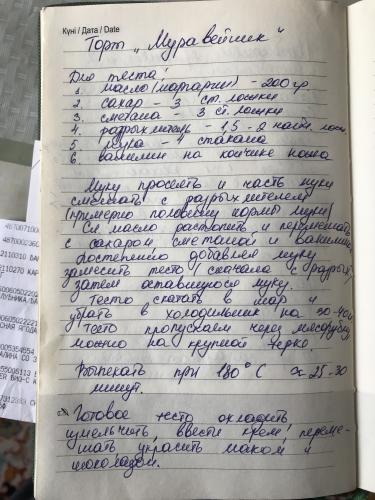 Күні / Дата / Date
Торт „Муравейник"
Для теста:
1. масло (маргарин) - 200 гр.
2. сахар - 3 ст. ложки
3. сметана - 3 ст. ложки
4. разрыхлитель - 1,5 - 2 чайн. ложки
5. мука - 4 стакана
6. ванилин на кончике ножа
Муку просеять и часть муки
смешать с разрыхлителем
(примерно половину нормы муки)
Сл масло растопить и перемешать
с сахаром сметаной и ванилин
Постепенно добавляя муку
замесить тесто (сначала с разрых
затем оставшуюся муку.
Тесто скатать в шар и
убрать в холодильник на 30-40м
Тесто пропускаем через мясорубку
можно на крупной терке.
Выпекать при 180°С ≈ 25-30
минут.
Готовое тесто охладить
измельчить, ввести крем, переме-
шать украсить маком и
шоколадом.